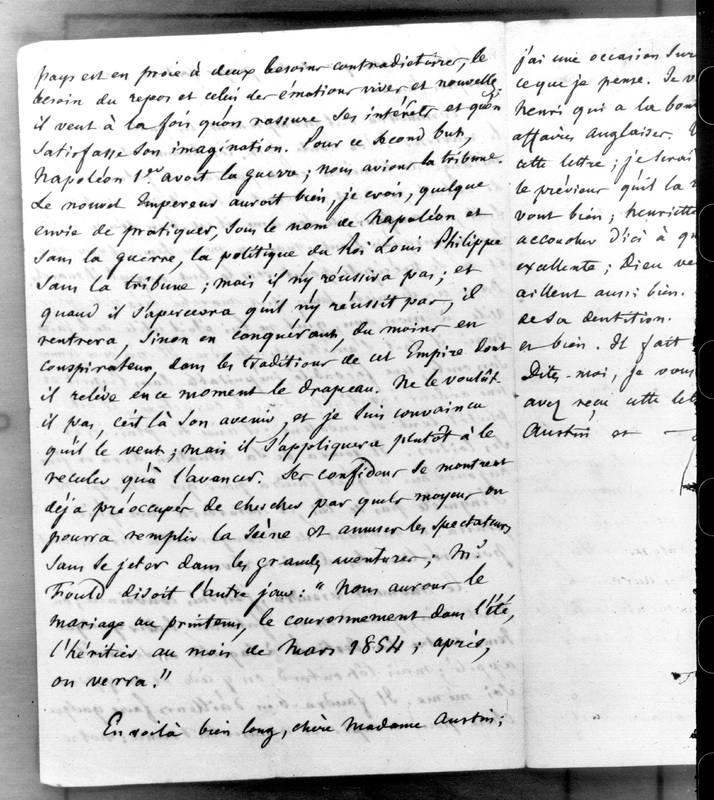 pays est en proie à deux besoins contradictoires, le
besoin du repos et celui des émotions vives et nouvelles;
il veut à la fois qu'on rassure ses intérêts et qu'on
satisfasse son imagination. Pour ce second but,
Napoléon 1er avoit la guerre; nous avions la tribune.
Le nouvel Empereur auroit bien, je crois, quelque
envie de pratiquer, sous le nom de Napoléon et
sans la guerre, la politique du Roi Louis Philippe
sans la tribune; mais il n'y réussira pas; et
quand il s'apercevra qu'il n'y réussit pas, il
rentrera, sinon en conquérant, du moins en
conspirateur, dans les traditions de cet Empire dont
il relève en ce moment le drapeau. Ne le voulût
il pas, c'est là son avenir, et je suis convaincu
qu'il le veut; mais il s'appliquera plutôt à le
reculer qu'à l'avancer. Ses confidens se montrent
déjà préoccupés de chercher par quels moyens on
pourra remplir la scène et amuser les spectateurs
sans se jeter dans les grandes aventures, Mr
Fould disoit l'autre jour: "Nous aurons le
mariage au printems, le couronnement dans l'été,
l'héritier au mois de Mars 1854; après,
on verra."
En voilà bien long, chère Madame Austin;
j'ai une occasion sure
ce que je pense. Je v
henri qui a la bon
affaires anglaises.
cette lettre; je serai
le prévenir qu'il la
vont bien; henriette
accoucher d'ici à qu
excellente; Dieu ve
aillent aussi bien.
de sa dentition.
et bien. Il fait
Dites-moi, je vous
avez reçu cette let
Austin et